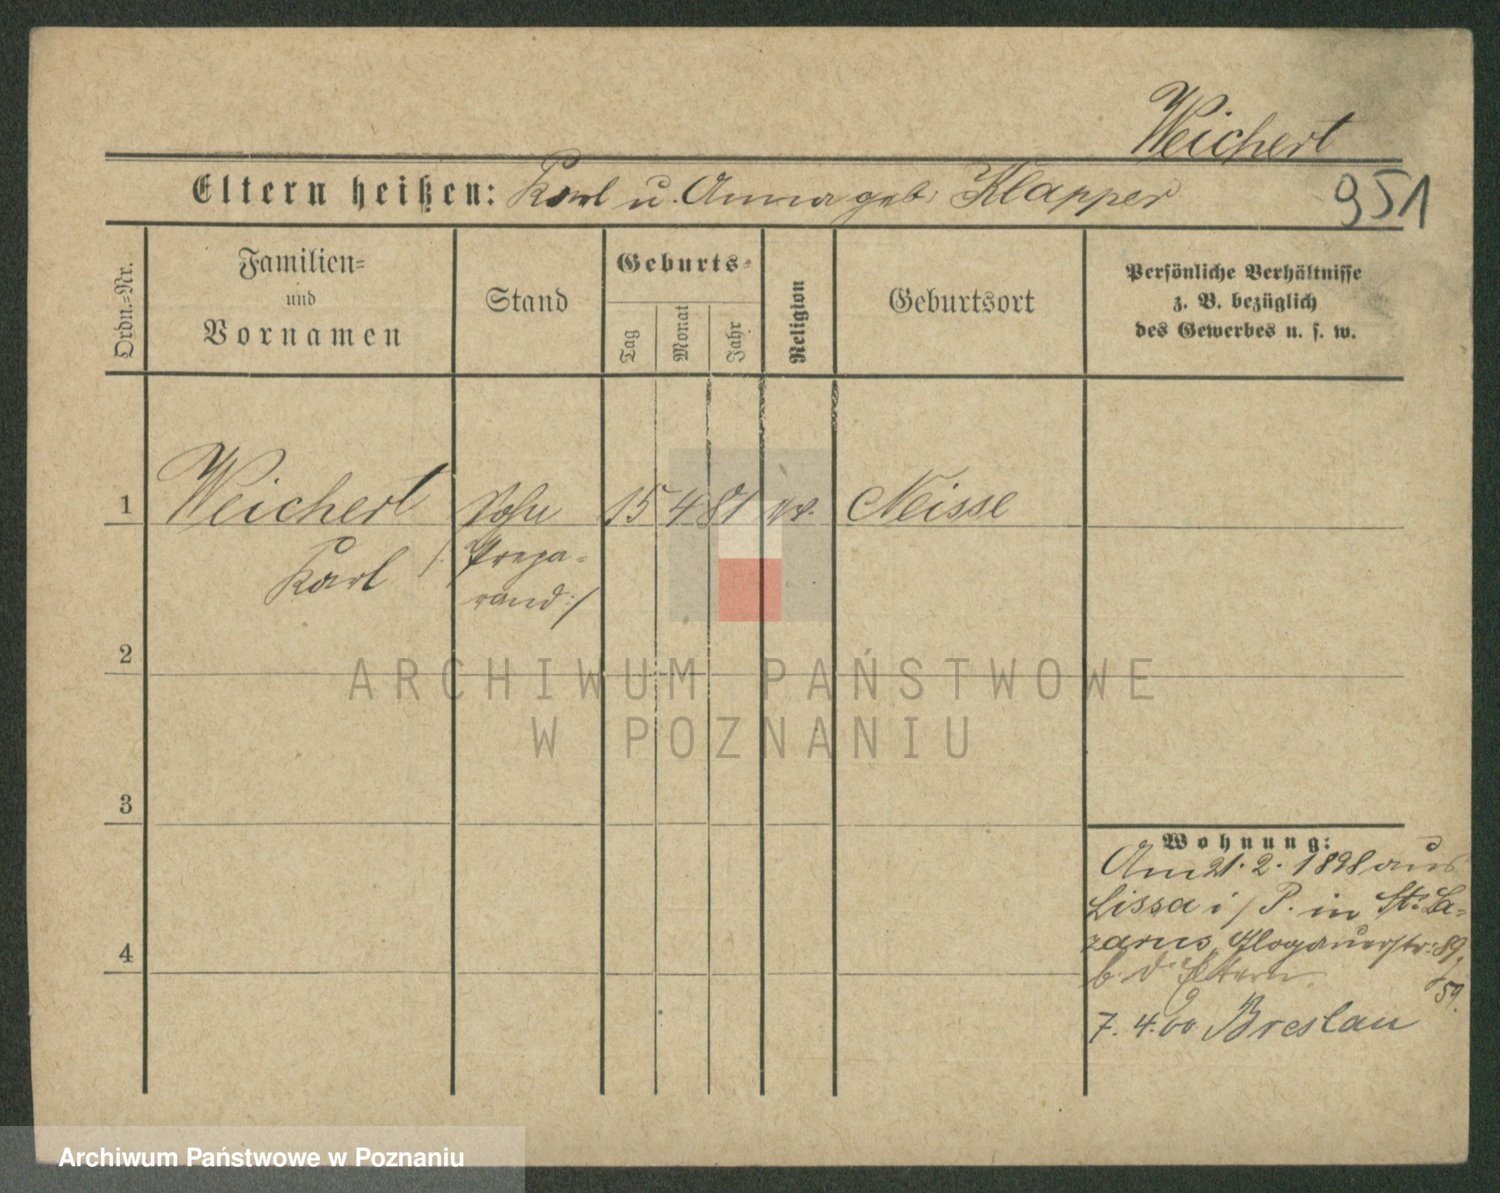 Weichert
951
Eltern heißen: Karl u. Anna geb. Klapper
Ordn.=Nr.
Familien=
und
Vornamen
Stand
Geburts=
Tag
Monat
Jahr
Religion
Geburtsort
Persönliche Verhältnisse
z. B. bezüglich
des Gewerbes u. s. w.
1 Weichert Sohn 15 4 81 ev. Neisse
Karl /: Prepa-
rand :/
2
3
4
Wohnung:
Am 21. 2. 1898 aus
Lissa i/P. in St. La-
zarus, Glogauerstr. 89,
b. d. Eltern. 59.
7. 4. 00 Breslau
ARCHIWUM PAŃSTWOWE
W POZNANIU
Archiwum Państwowe w Poznaniu